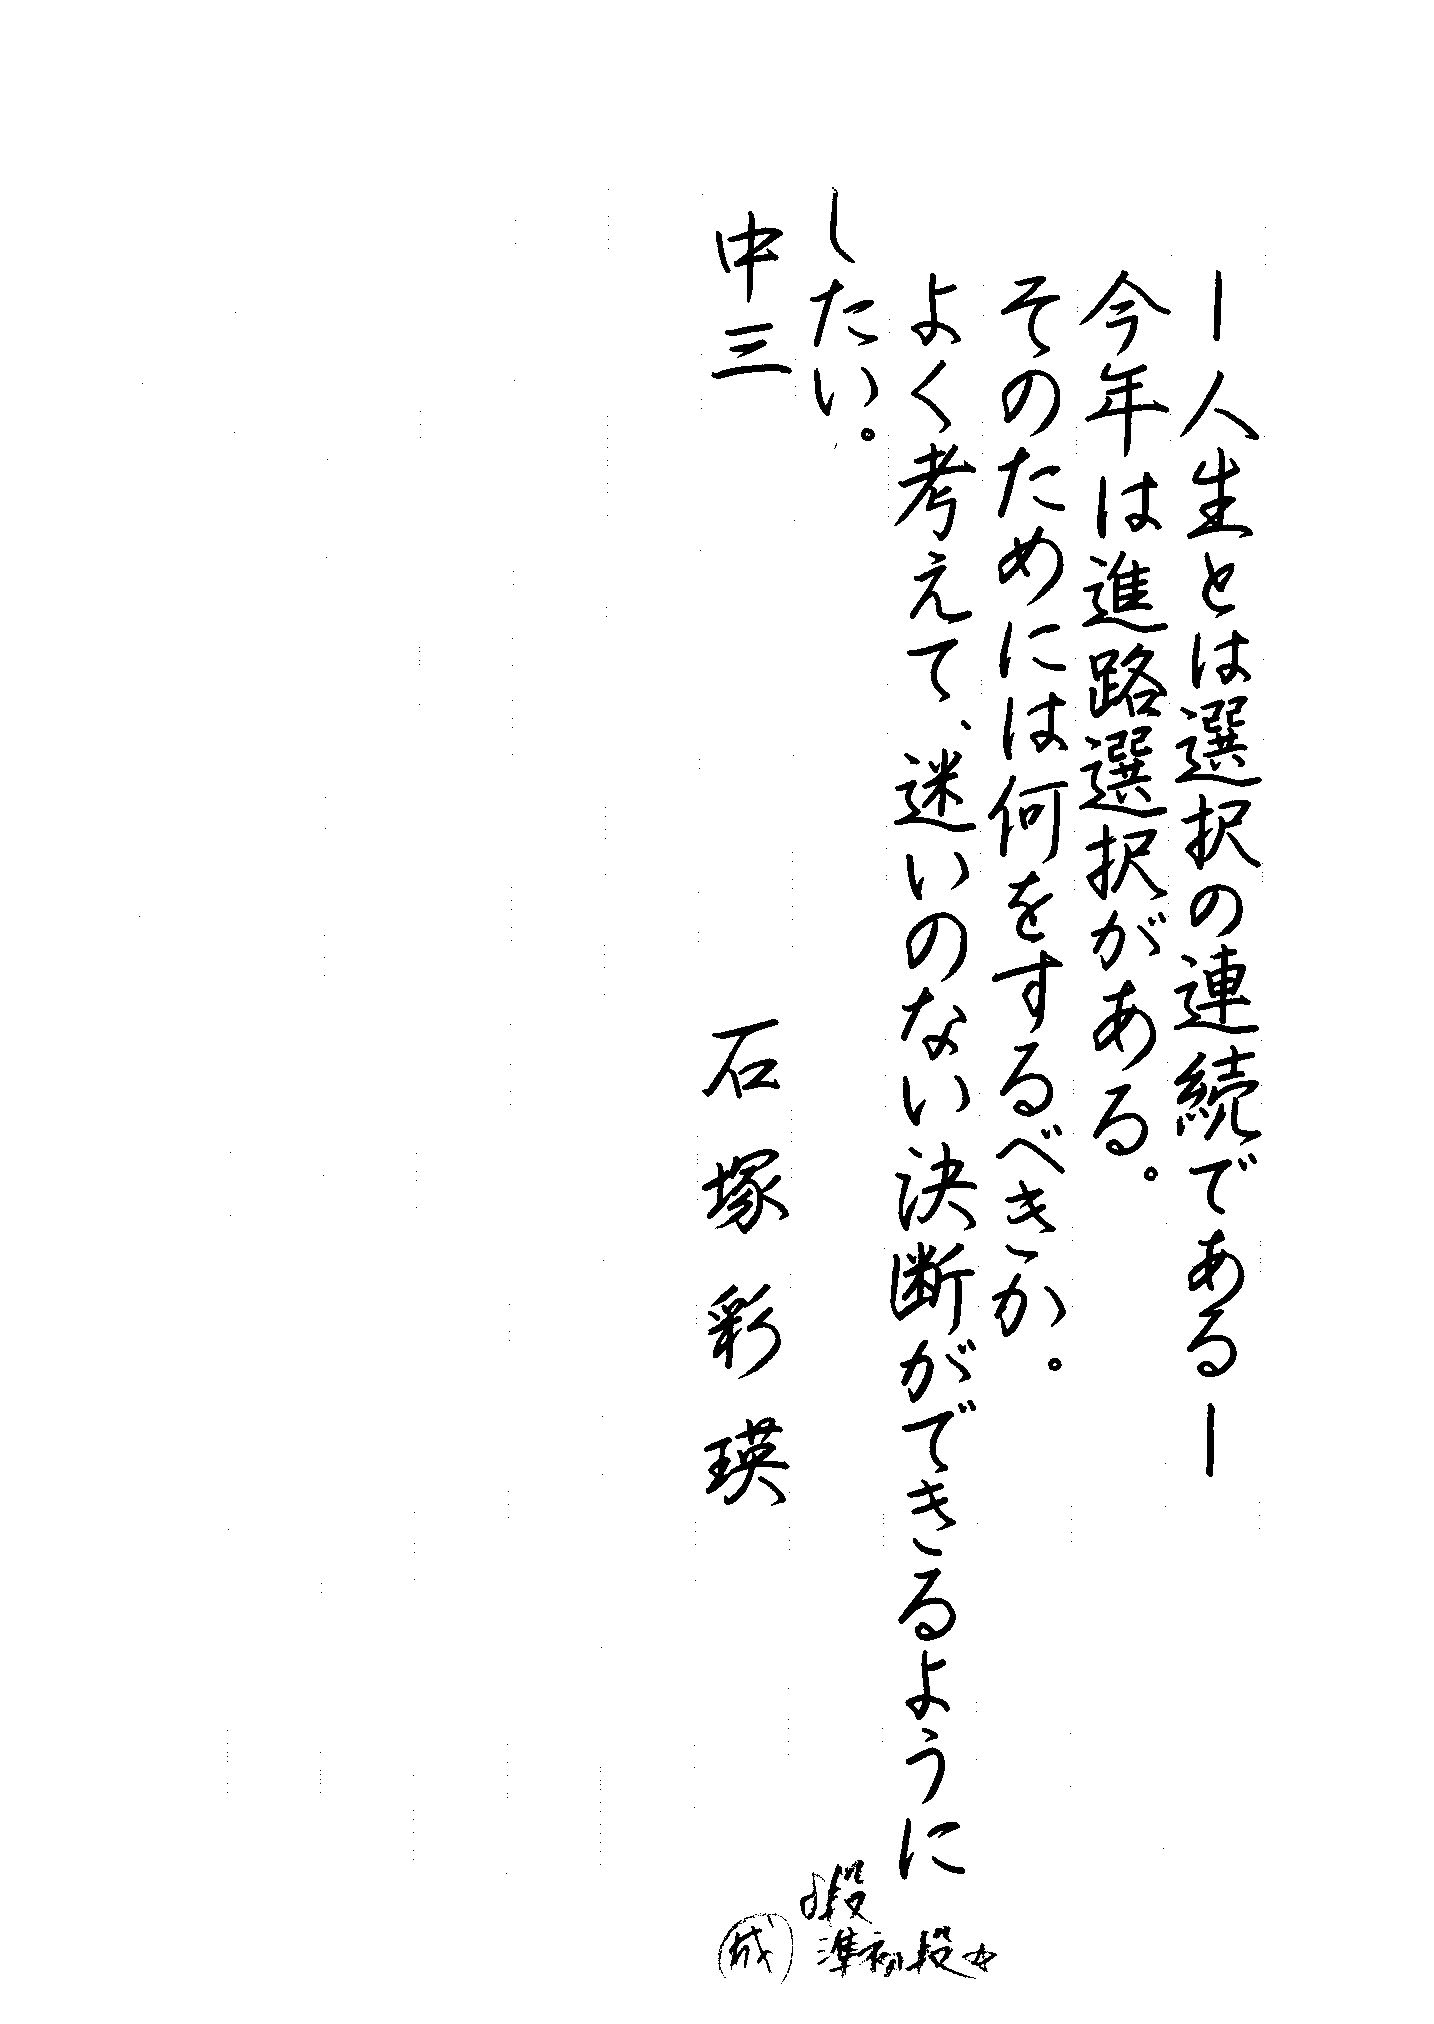 ―人生とは選択の連続である―
今年は進路選択がある。
そのためには何をするべきか。
よく考えて、迷いのない決断ができるように
したい。
中三 石塚彩瑛
段
準初段
成